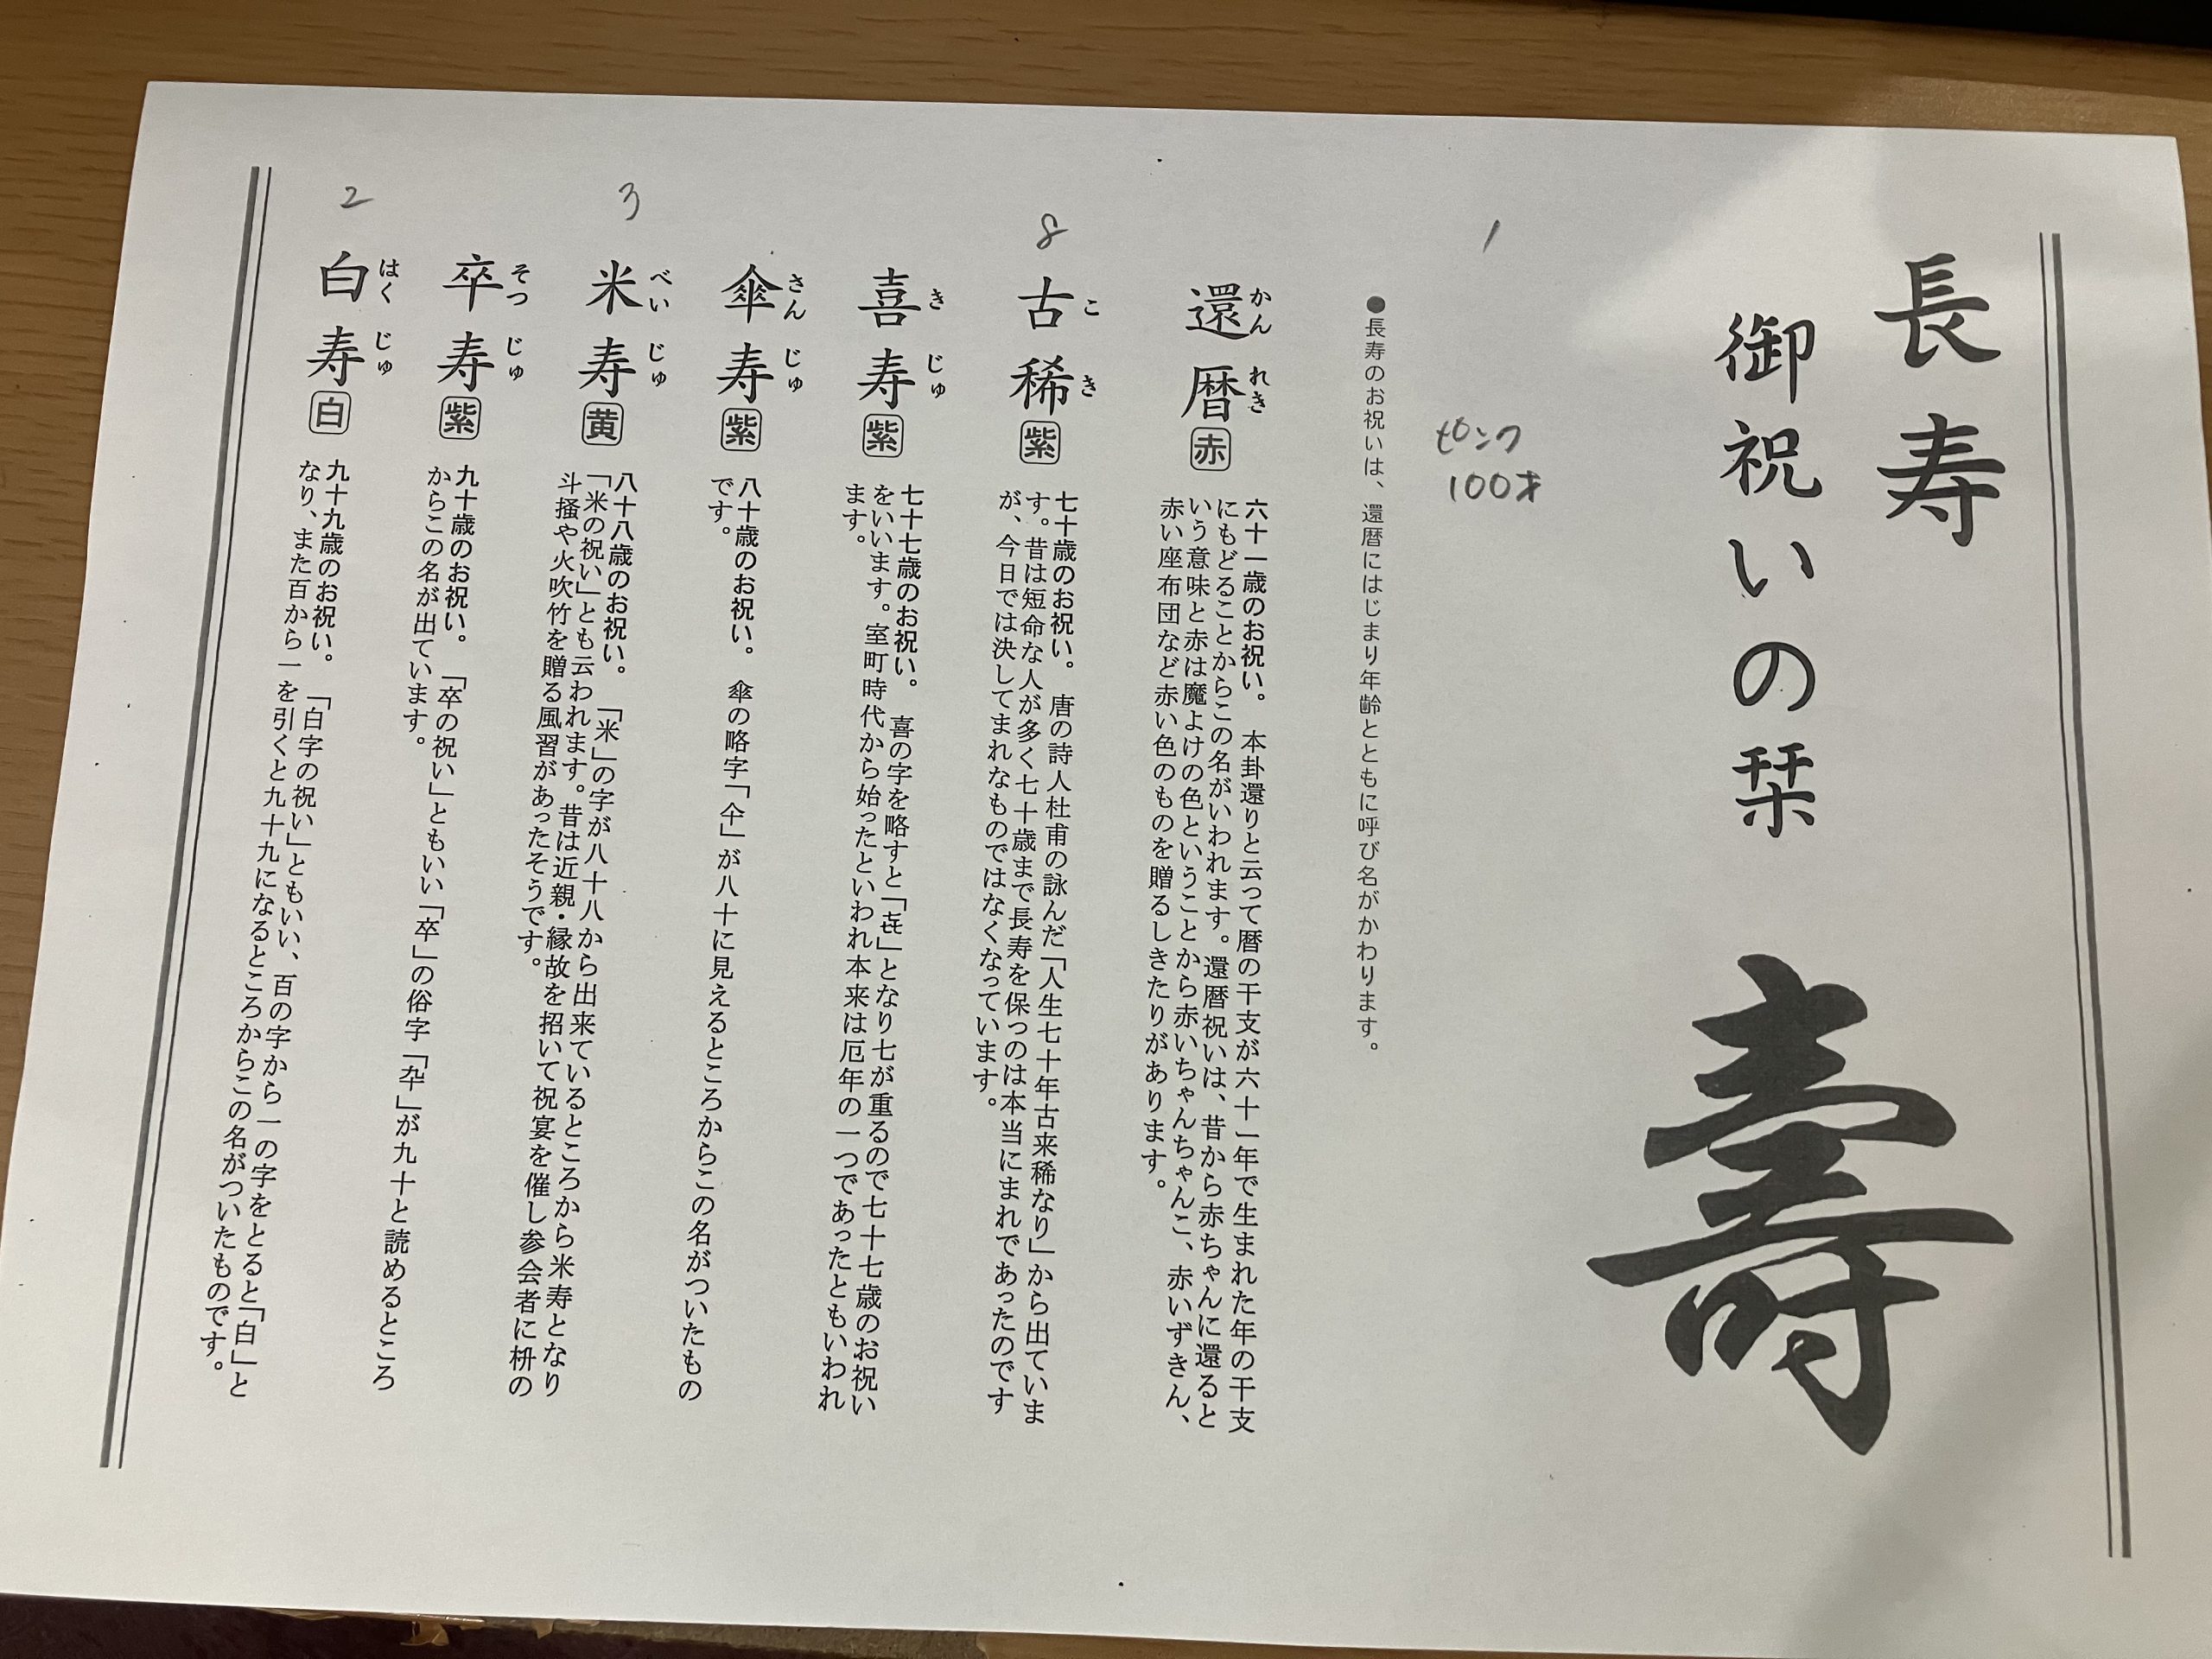 長寿
御祝いの栞
壽
1
ピンク
100才
●長寿のお祝いは、還暦にはじまり年齢とともに呼び名がかわります。
還暦 赤
かんれき
六十一歳のお祝い。本卦還りと云って暦の干支が六十一年で生まれた年の干支
にもどることからこの名がいわれます。還暦祝いは、昔から赤ちゃんに還ると
いう意味と赤は魔よけの色ということから赤いちゃんちゃんこ、赤いずきん、
赤い座布団など赤い色のものを贈るしきたりがあります。
8
古稀 紫
こき
七十歳のお祝い。唐の詩人杜甫の詠んだ「人生七十年古来稀なり」から出ていま
す。昔は短命な人が多く七十歳まで長寿を保つのは本当にまれであったのです
が、今日では決してまれなものではなくなっています。
喜寿 紫
きじゅ
七十七歳のお祝い。喜の字を略すと「㐂」となり七が重るので七十七歳のお祝い
をいいます。室町時代から始ったといわれ本来は厄年の一つであったともいわれ
ます。
傘寿 紫
さんじゅ
八十歳のお祝い。傘の略字「仐」が八十に見えるところからこの名がついたもの
です。
3
米寿 黄
べいじゅ
八十八歳のお祝い。「米」の字が八十八から出来ているところから米寿となり
「米の祝い」とも云われます。昔は近親・縁故を招いて祝宴を催し参会者に枡の
斗掻や火吹竹を贈る風習があったそうです。
卒寿 紫
そつじゅ
九十歳のお祝い。「卒の祝い」ともいい「卒」の俗字「卆」が九十と読めるところ
からこの名が出ています。
2
白寿 白
はくじゅ
九十九歳のお祝い。「白字の祝い」ともいい、百の字から一の字をとると「白」と
なり、また百から一を引くと九十九になるところからこの名がついたものです。